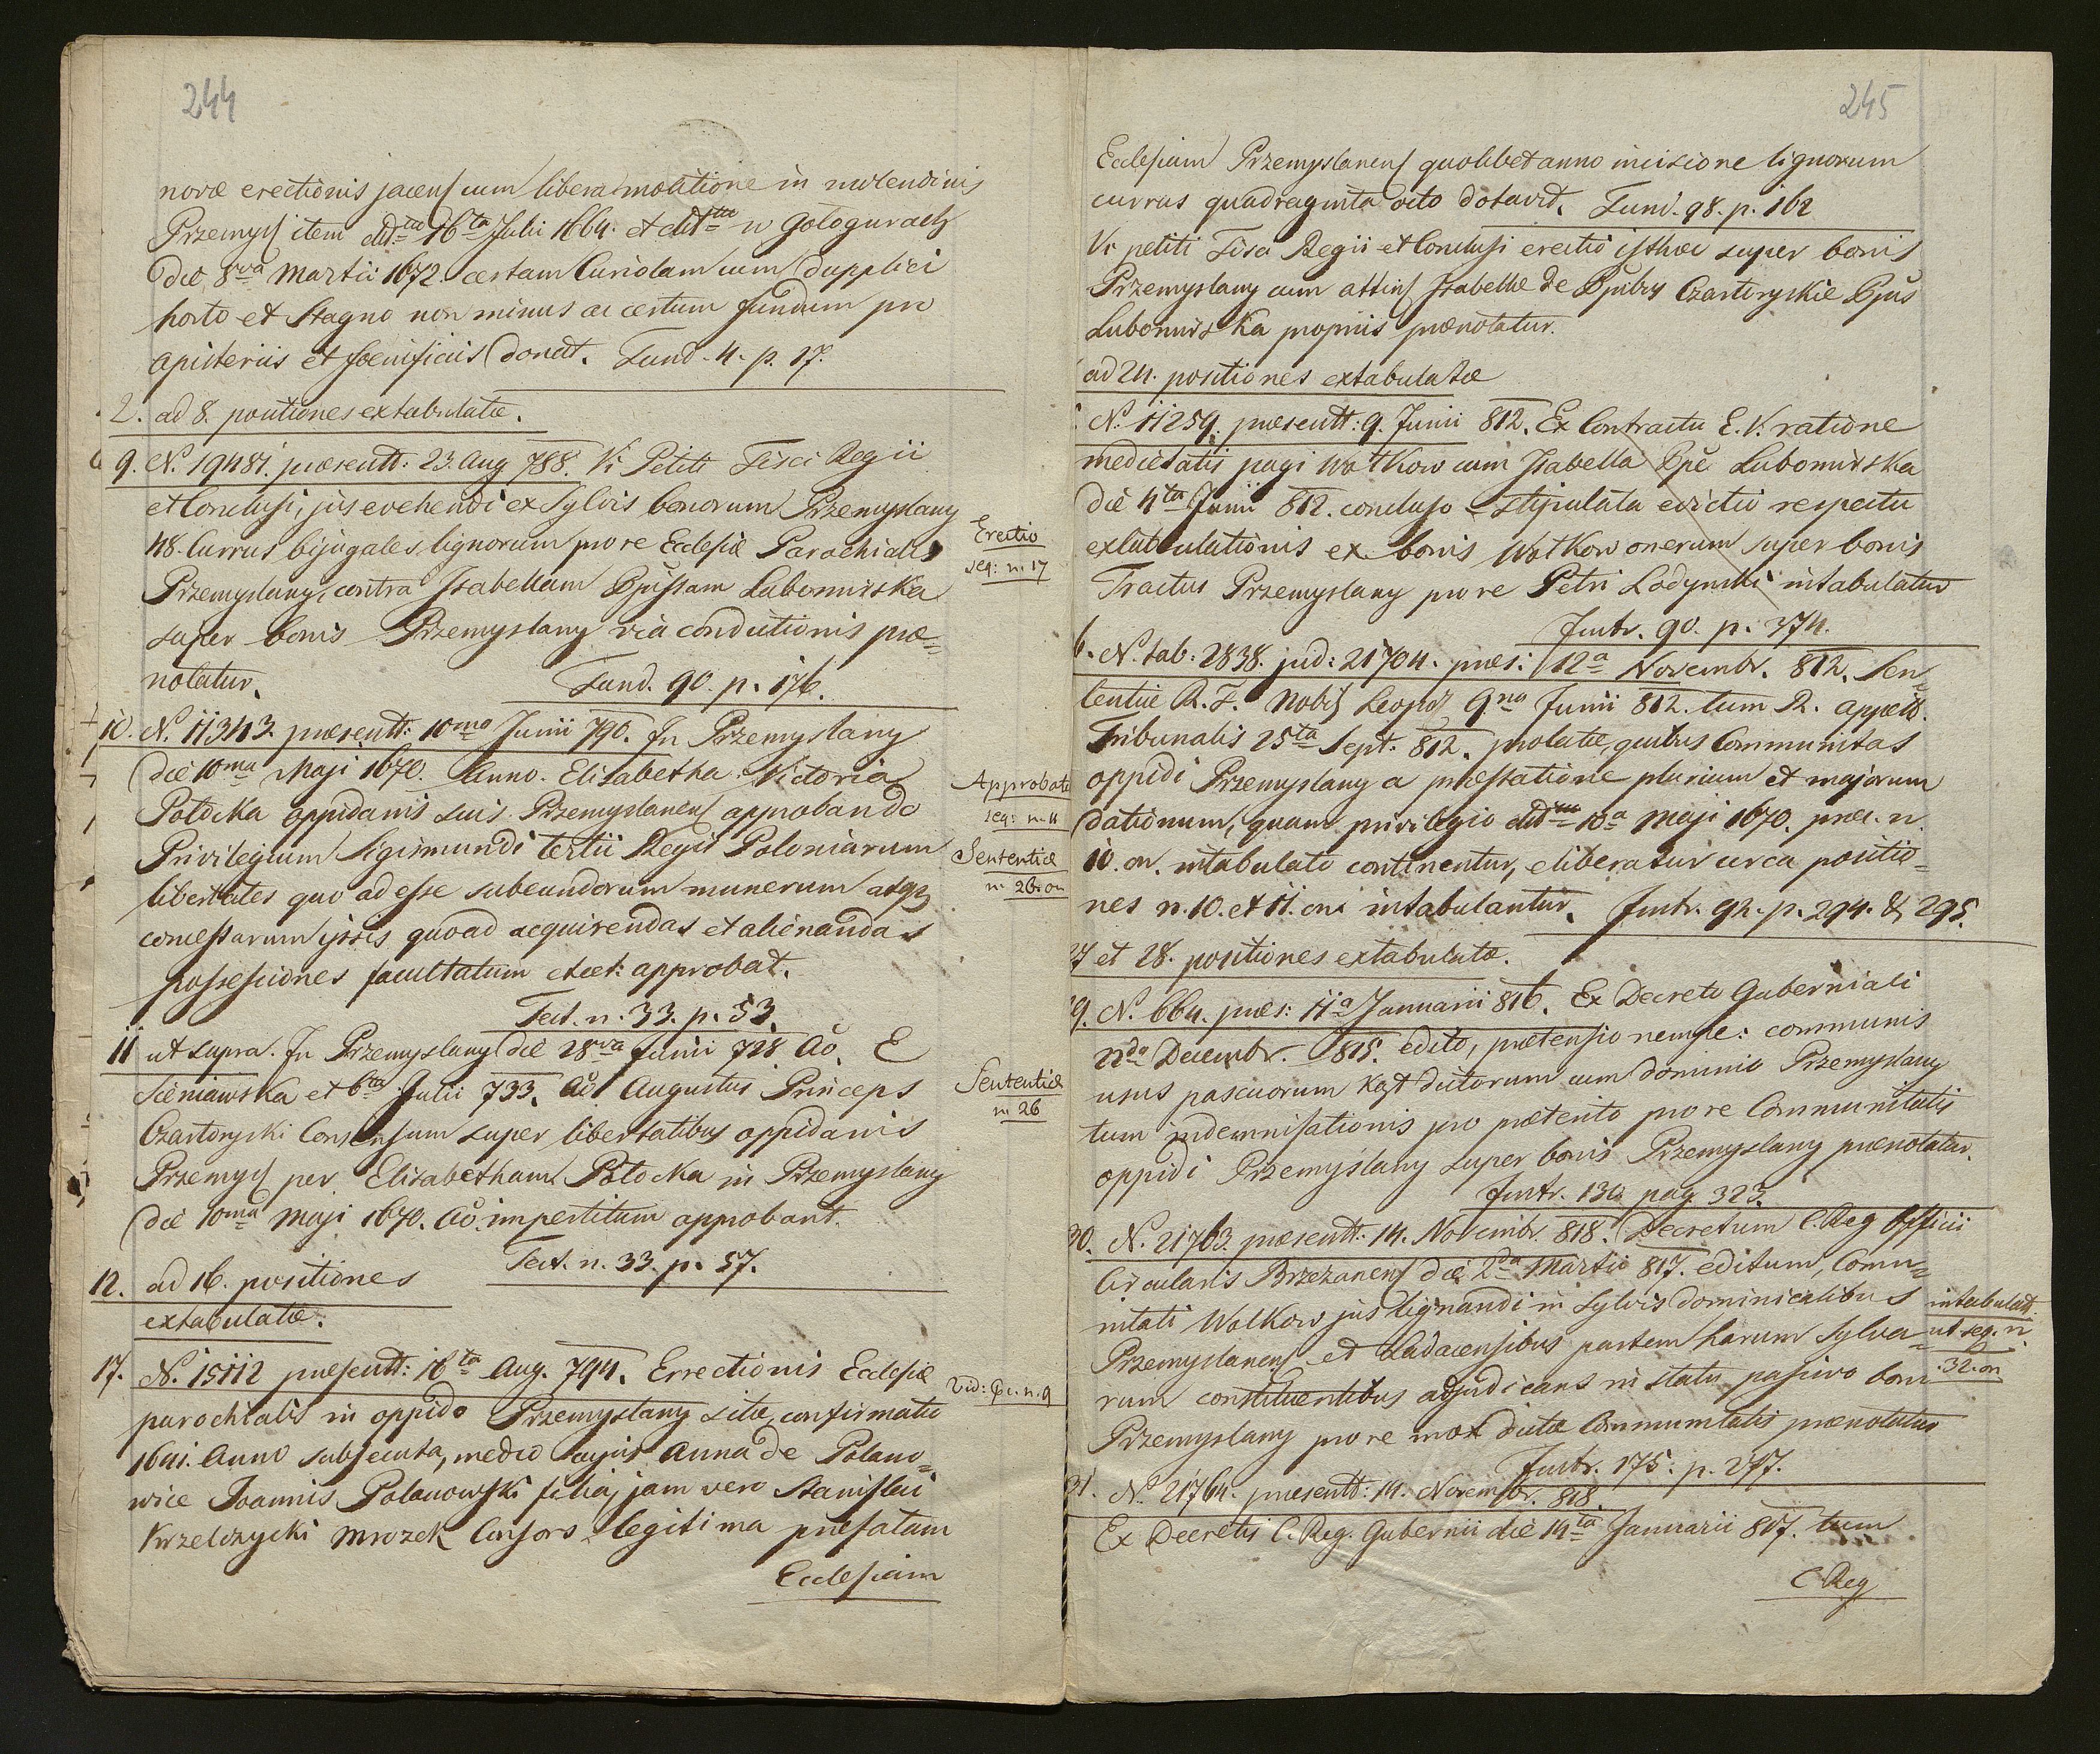 244
novæ erectionis jacens cum libera molitione in molendinis
Przemys item ddtto 16ta Julii 1664. et ddtto w Gołogurach
die 8va Martii 1672. certam Curiolam cum dupplici
horto et Stagno non minus ac certum fundum pro
apisteriis et foenificiis donat. Fund. 4. p. 17.
2. ad 8. positiones extabulatæ.
9. N. 19481. præsentt: 23. Aug 788. Vi Petiti Fisci Regii
et Conclusi, jus evehendi ex Sylvis bonorum Przemyslany
48. Currus bijugales lignorum pro re Ecclesiæ Parochialis
Przemyslany, contra Isabellam Ppissam Lubomirska
super bonis Przemyslany via conductionis præ=
notatur. Fund. 90. p. 176.
Erectio
seq: n. 17
10. N. 11343. præsentt: 10ma Junii 790. In Przemyslany
die 10ma Maji 1670. Anno. Elisabetha Victoria
Potocka oppidanis suis Przemyslanens approbando
Privilegium Sigismundi tertii Regis Poloniarum
libertates quo ad esse subeundorum munerum atqz
concessarum ipsis quoad acquirendas et alienandas
possessiones facultatum etcet: approbat.
Tect. n. 33. p. 53.
Approbate
seq: n. 11
Sententiæ
n. 26. on
11 ut supra. In Przemyslany die 28va Junii 728 Ao. E
Sieniawska et 6ta Julii 733. Ao Augustus Princeps
Czartoryski Consensum super libertatibus oppidanis
Przemys per Elisabetham Potocka in Przemyslany
die 10ma Maji 1670. Ao. impertitum approbant.
Tect. n. 33. p. 57.
Sententiæ
n. 26
12. ad 16. positiones
extabulatæ.
17. N. 15112 præsentt: 16ta Aug. 794. Errectionis Ecclesiæ
parochialis in oppido Przemyslany sitæ, confirmatio
1641. Anno subsecuta, medio cujus Anna de Polano=
wice Joannis Polanowski filia, jam vero Stanislai
Krzelczycki Mrozek Consors legitima præfatam
Ecclesiam
Vid: n. 9
245
Ecclesiam Przemyslanens quolibet anno incisione lignorum
currus quadraginta octo dotavit. Fund. 98. p. 162
Vi petiti Fisci Regii et Conclusi erectio isthæc super bonis
Przemyslany cum attins Isabellæ de Ppibus Czartoryskie Ppis
Lubomirska propriis prænotatur.
ad 24. positiones extabulatæ
N. 11259. præsentt: 9. Junii 812. Ex Contractu E. V. ratione
medietatis pagi Wołkow cum Isabella Ppe Lubomirska
die 4ta Junii 812. concluso stipulata evictio respectu
extabulationis ex bonis Wołkow onerum super bonis
Tractus Przemyslany pro re Petri Ladynski intabulatur
Instr. 90. p. 374.
6. N. tab: 2838. jud: 21704. præs: 12a Novembr. 812. Sen
tentiæ R. F. Nobil Leopol 9na Junii 812. tum R. appell.
Tribunalis 25ta Sept: 812. prolatæ, quibus Communitas
oppidi Przemyslany a præstatione plurium et majorum
dationum, quam privilegio ddtto 10a Maji 1670. præ. n.
10. on. intabulato continentur, eliberatur circa positio=
nes n. 10. et 11. on. intabulantur. Instr. 92. p. 294. & 295.
27 et 28. positiones extabulatæ.
29. N. 664. præs: 11a Januarii 816. Ex Decreto Guberniali
Decembr. 815. edito, prætensio nempe: communis
usus pascuorum Kąt dictorum cum dominio Przemyslany
tum indemnisationis pro præterito pro re Communitatis
oppidi Przemyslany super bonis Przemyslany prænotatur.
Instr. 130 pag. 323.
30. N. 21763. præsentt: 14. Novembr. 818. Decretum C. Reg Officii
Circularis Brzezanens die 2da Martii 817. editum, Comu=
nitati Wolkow jus lignandi in Sylvis dominicalibus
Przemyslanens et Ladacensibus partem harum Sylva=
rum constituentibus adjudicans in statu passivo bon
Przemyslany pro re mox dictæ Communitatis prænotatur
Instr. 175. p. 297.
intabulatt.
ut seq. n.
32. on
31. N. 21764. præsentt: 14. Novembr. 818
Ex Decretis C. Reg. Gubernii die 14ta Januarii 807. tum
C. Reg